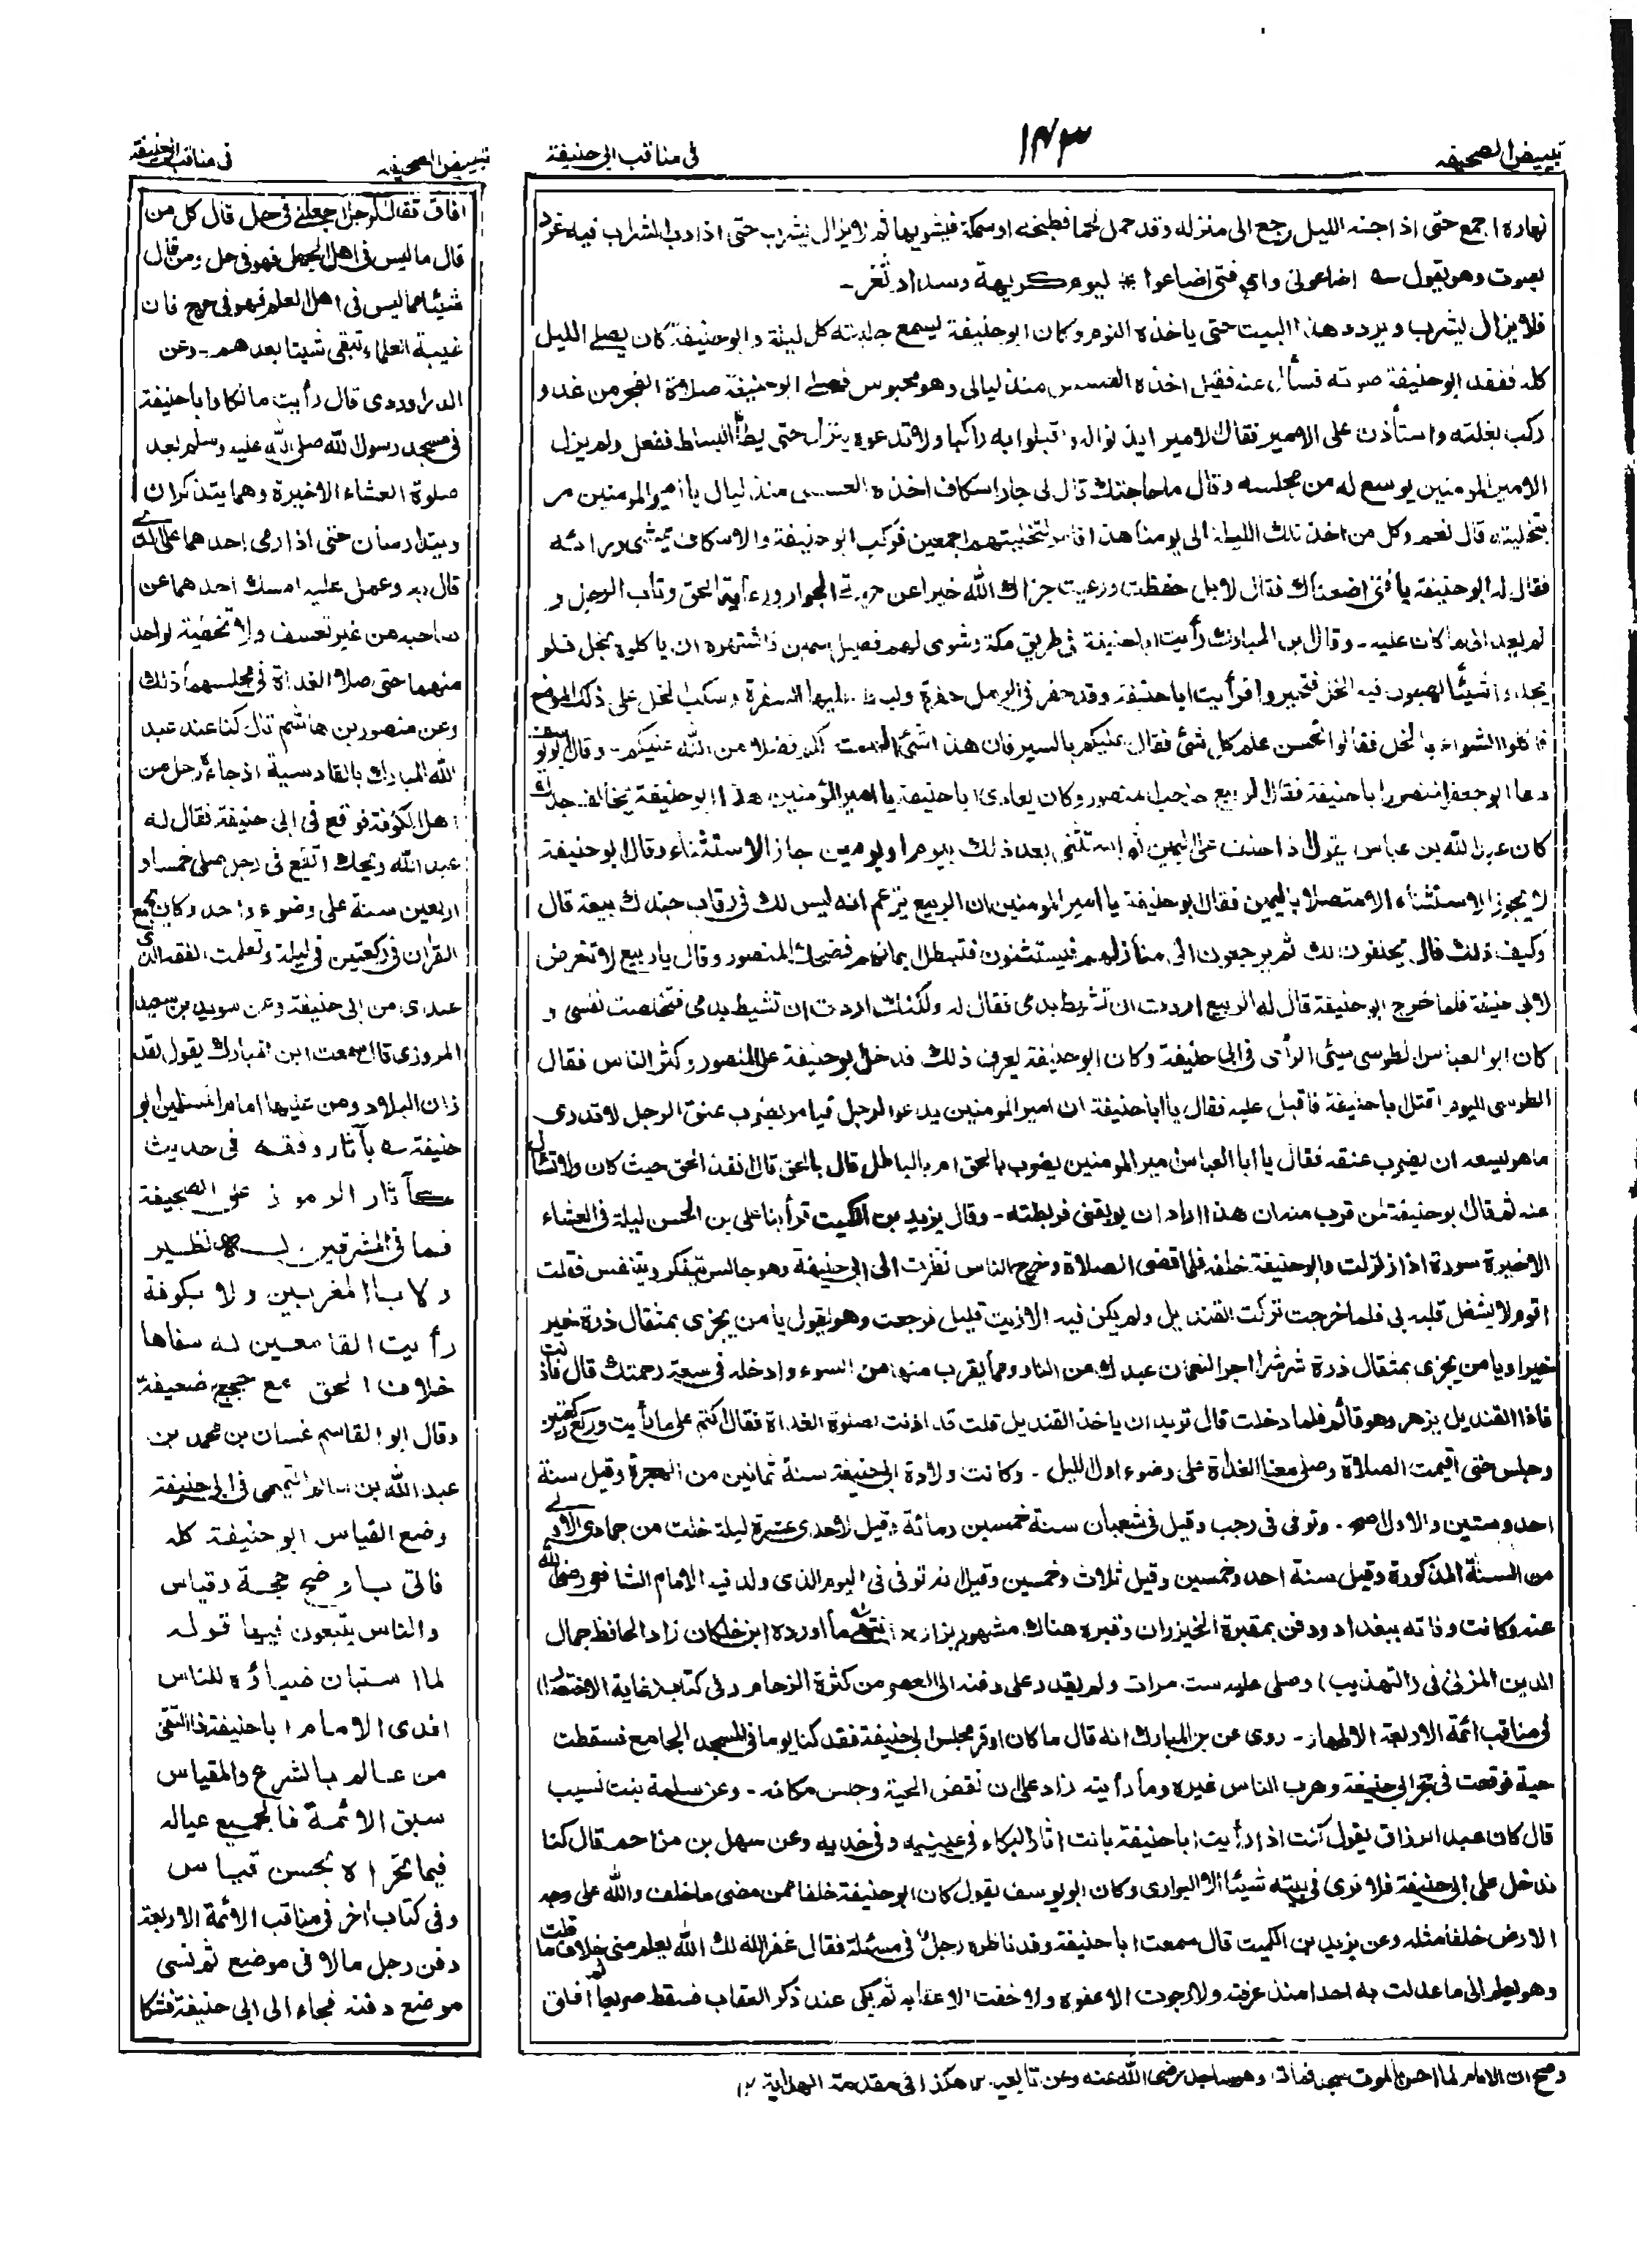 تبييض الصحيفه
١٤٣
فى مناقب ابى حنيفة
نهاره اجمع حتى اذا جنه الليل رجع الى منزله وقد حمل لحما فطبخه او سمكة فيشويها ثم لا يزال يشرب حتى اذا دب الشراب فيه غرد
بصوت وهو يقول سه اضاعونى واى فتى اضاعوا * ليوم كريهة وسداد ثغر ـ
فلا يزال يشرب ويردد هذا البيت حتى ياخذه النوم وكان ابو حنيفة يسمع جلبته كل ليلة وابو حنيفة كان يصلے الليل
كله ففقد ابو حنيفة صوته فسأل عنه فقيل اخذه العسس منذ ليالى وهو محبوس فصلے ابو حنيفة صلاة الفجر من غد و
ركب بغلته واستأذن على الامير فقال الامير ايذنواله واقبلوا به راكبا ولا تدعوه ينزل حتى يطأ البساط ففعل ولم يزل
الامير المومنين يوسع له من مجلسه وقال ما حاجتك قال لى جار اسكاف اخذه العسس منذ ليال يا امير المومنين مر
بتخليته قال نعم وكل من اخذ تلك الليلة الى يومنا هذا فامر بتخليتهم اجمعين فركب ابو حنيفة والاسكاف يمشى وراءه
فقال له ابو حنيفة يا فتى اضعناك فقال لا بل حفظت ورعيت جزاك الله خيرا عن حرمة الجوار ورعاية الحق وتاب الرجل و
لم يعد الى ما كان عليه ـ وقال بن المبارك رأيت ابا حنيفة فى طريق مكة وشوى لهم فصيل سمين فاشتهوه ان ياكلوه بخل فلم
يجدوا شيئا يصبون فيه الخل فتحيروا فرأيت ابا حنيفة وقد حفر فى الرمل حفرة وبسط عليها السفرة وسكب الخل على ذلك الموضع
فاكلوا الشواء بالخل فقالوا تحسن علم كل شئ فقال عليكم بالسير فان هذا شئ الهمت لكم فضلا من الله عليكم ـ وقال ابو يوسف
دعا ابو جعفر المنصور ابا حنيفة فقال الربيع حاجب المنصور وكان يعادى ابا حنيفة يا امير المؤمنين هذا ابو حنيفة يخالف جدك
كان عبد الله بن عباس يقول اذا حلف على اليمين ثم استثنى بعد ذلك بيوم او يومين جاز الاستثناء وقال ابو حنيفة
لا يجوز الاستثناء الا متصلا باليمين فقال ابو حنيفة يا امير المومنين ان الربيع يزعم انه ليس لك فى رقاب جندك بيعة قال
وكيف ذلك قال يحلفون لك ثم يرجعون الى منازلهم فيستثنون فتبطل ايمانهم فضحك المنصور وقال يا ربيع لا تتعرض
لابى حنيفة فلما خرج ابو حنيفة قال له الربيع اردت ان تشيط بدمى فقال له ولكنك اردت ان تشيط بدمى فتخلصت نفسى و
كان ابو العباس الطوسى سيئ الرأى فى ابى حنيفة وكان ابو حنيفة يعرف ذلك فدخل ابو حنيفة على المنصور وكثر الناس فقال
الطوسى اليوم اقتل ابا حنيفة فاقبل عليه فقال يا ابا حنيفة ان امير المومنين يدعو الرجل فيامر بضرب عنق الرجل لا تدرى
ما هو ايسعه ان يضرب عنقه فقال يا ابا العباس امير المومنين يضرب بالحق ام بالباطل قال بالحق قال انفذ الحق حيث كان ولا تسأل
عنه ثم قال ابو حنيفة لمن قرب منه ان هذا اراد ان يوبقنى فربطته ـ وقال يزيد بن الكميت قرأ بنا على بن الحسن ليلة فى العشاء
الاخيرة سورة اذا زلزلت وابو حنيفة خلفه فلما قضى الصلاة وخرج الناس نظرت الى ابى حنيفة وهو جالس يتفكر ويتنفس فقلت
اقوم لا يشغل قلبه بى فلما خرجت تركت القنديل ولم يكن فيه الا زيت قليل فرجعت وهو يقول يا من يجزى بمثقال ذرة خير
خيرا ويا من يجزى بمثقال ذرة شر شرا اجر النعمان عبدك من النار ومما يقرب منها من السوء وادخله فى سعة رحمتك قال فاذنت
فاذا القنديل يزهر وهو قائم فلما دخلت قال تريد ان ياخذ القنديل قلت قد اذنت لصلوة الغداة فقال اكتم على ما رأيت وركع ركعتين
وجلس حتى اقيمت الصلاة وصلى معنا الغداة على وضوء اول الليل ـ وكانت ولادة ابى حنيفة سنة ثمانين من الهجرة وقيل سنة
احد وستين والاول صح . وتوفى فى رجب وقيل فى شعبان سنة خمسين ومائة وقيل لاحدى عشرة ليلة خلت من جمادى الاولے
من السنة المذكورة وقيل سنة احد وخمسين وقيل ثلاث وخمسين وقيل انه توفى فى اليوم الذى ولد فيه الامام الشافعى رضى الله
عنه وكانت وفاته ببغداد ودفن بمقبرة الخيزران وقبره هناك مشهور يزار * انتهى ما أورده ابن خلكان زاد الحافظ جمال
الدين المزنى فى (التهذيب) وصلى عليه ست مرات ولم يقدر على دفنه الى العصر من كثرة الزحام وفى كتاب (غاية الاختصار)
فى مناقب ائمة الاربعة الاطهار ـ روى عن بن المبارك انه قال ما كان اوقر مجلس ابى حنيفة فقد كنا يوما فى المسجد الجامع فسقطت
حية فوقعت فى حجر ابى حنيفة وهرب الناس غيره وما رأيته زاد على ان نفض الحية وجلس مكانه ـ وعن سلمة بنت نسيب
قال كان عبد الرزاق يقول كنت اذا رأيت ابا حنيفة بانت اثار البكاء فى عينيه وفى خديه وعن سهل بن مزاحم قال كنا
ندخل على ابى حنيفة فلا نرى فى بيته شيئا الا البوارى وكان ابو يوسف يقول كان ابو حنيفة خلفا عمن مضى ما خلف والله على وجه
الارض خلفا مثله وعن يزيد بن الكميت قال سمعت ابا حنيفة وقد ناظره رجل فى مسئلة فقال غفر الله لك الله يعلم منى خلاف ما قلت
وهو يعلم انى ما عدلت به احدا منذ عرفته ولا رجوت الا عفوه ولا خفت الا عقابه ثم بكى عند ذكر العقاب فسقط صريعا ثم افاق
وصح ان الامام لما احس بالموت سجد فمات وهو ساجد رضى الله عنه وعن تابعيه ١٢ هكذا فى مقدمة الهداية ١٢
تبييض الصحيفه
فى مناقب ابى حنيفة
افاق فقال له الرجل اجعلنى فى حل قال كل من
قال ما ليس فى اهل الجهل فهو فى حل ومن قال
شيئا مما ليس فى اهل العلم فهو فى حرج فان
غيبة العلماء تبقى شيئا بعدهم ـ وعن
الدراوردى قال رأيت مالكا وابا حنيفة
فى مسجد رسول الله صلى الله عليه وسلم بعد
صلوة العشاء الاخيرة وهما يتذكران
ويتدارسان حتى اذا رمى احدهما على الذى
قال به وعمل عليه امسك احدهما عن
صاحبه من غير تعسف ولا تخطية لواحد
منهما حتى صلا الغداة فى مجلسهما ذلك
وعن منصور بن هاشم قال كنا عند عبد
الله المبارك بالقادسية اذ جاءه رجل من
اهل الكوفة فوقع فى ابى حنيفة فقال له
عبد الله ويحك اتقع فى رجل صلى خمسا و
اربعين سنة على وضوء واحد وكان يجمع
القران فى ركعتين فى ليلة وتعلمت الفقه الذى
عندى من ابى حنيفة وعن سويد بن سعيد
المروزى قال سمعت ابن المبارك يقول لقد
زان البلاد ومن عليها امام المسلمين ابو
حنيفة سه بآثار وفقه فى حديث
كآثار الرموز على الصحيفة
فما فى المشرقين له نظير
ولا بالمغربين ولا بكوفة
رأيت القامعين له سفاها
خلاف الحق مع حجج ضعيفة
وقال ابو القاسم غسان بن محمد بن
عبد الله بن سالم التميمى فى ابى حنيفة
وضع القياس ابو حنيفة كله
فاتى باوضح حجة وقياس
والناس يتبعون فيها قوله
لما استبان ضياؤه للناس
افدى الامام ابا حنيفة ذا التقى
من عالم بالشرع والمقياس
سبق الائمة فالجميع عياله
فيما تحراه بحسن قياس
وفى كتاب اخر فى مناقب الائمة الاربعة
دفن رجل مالا فى موضع ثم نسى
موضع دفنه فجاء الى ابى حنيفة فشكا